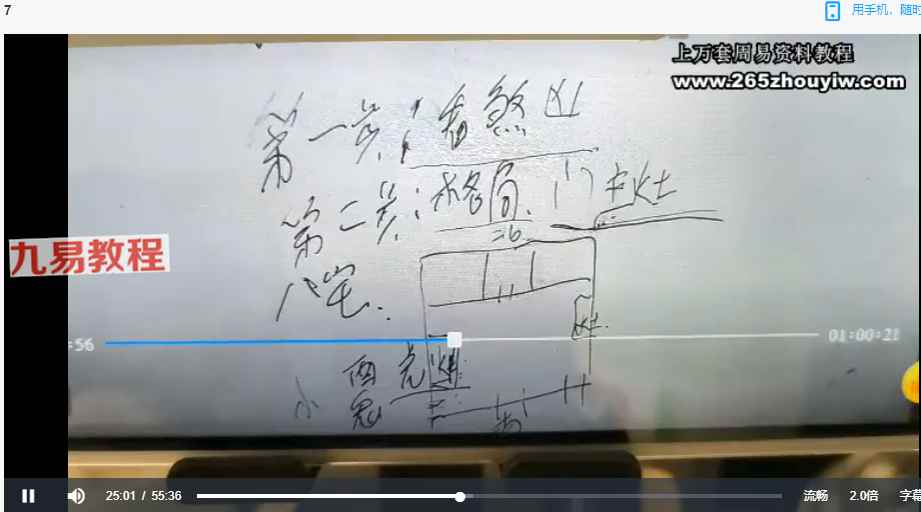 7
用手机、随时
上万套周易资料教程
www.265zhouyiw.com
第一步：看煞凶
第二步：格局、门主灶
北
九易教程
八宅.
灶
:56
01:00:21
西
南
25:01 / 55:36
流畅
2.0倍
字幕